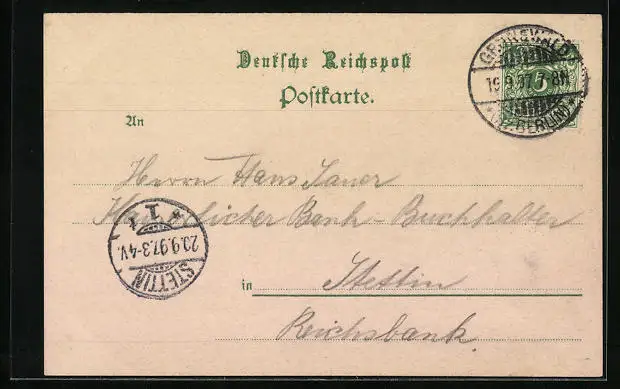 Deutsche Reichspost
Postkarte.
GRUNEWALD
19.9.97.7-8N
* (BZ. BERLIN) *
5
An
Herrn Hans Sauer
Kaiserlicher Bank-Buchhalter
in Stettin
Reichsbank
STETTIN
20.9.97.3-4V.
* 1